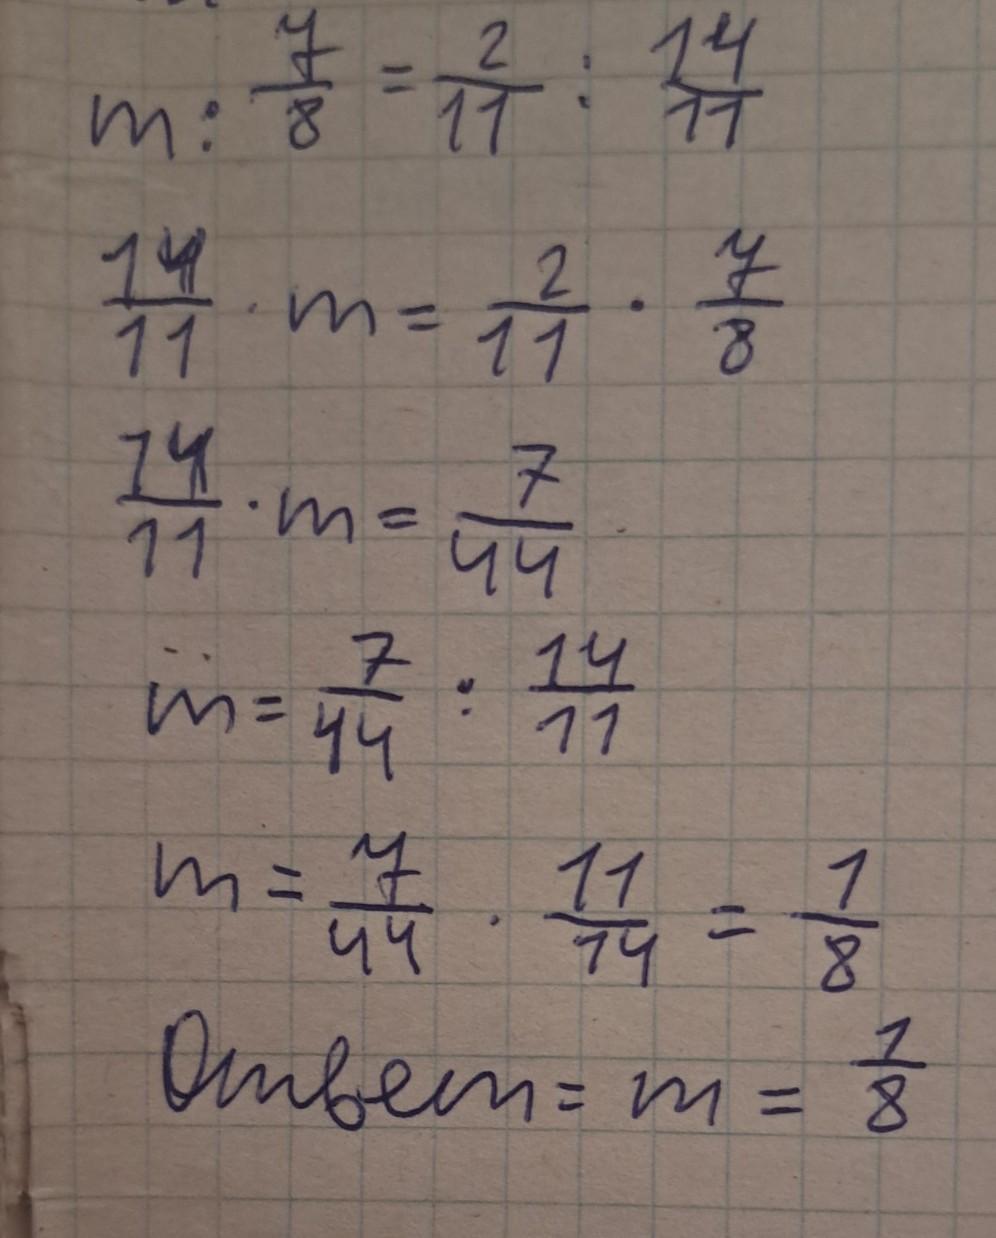 m : 7/8 = 2/11 : 14/11
14/11 · m = 2/11 · 7/8
14/11 · m = 7/44
m = 7/44 : 14/11
m = 7/44 · 11/14 = 1/8
Ответ = m = 1/8